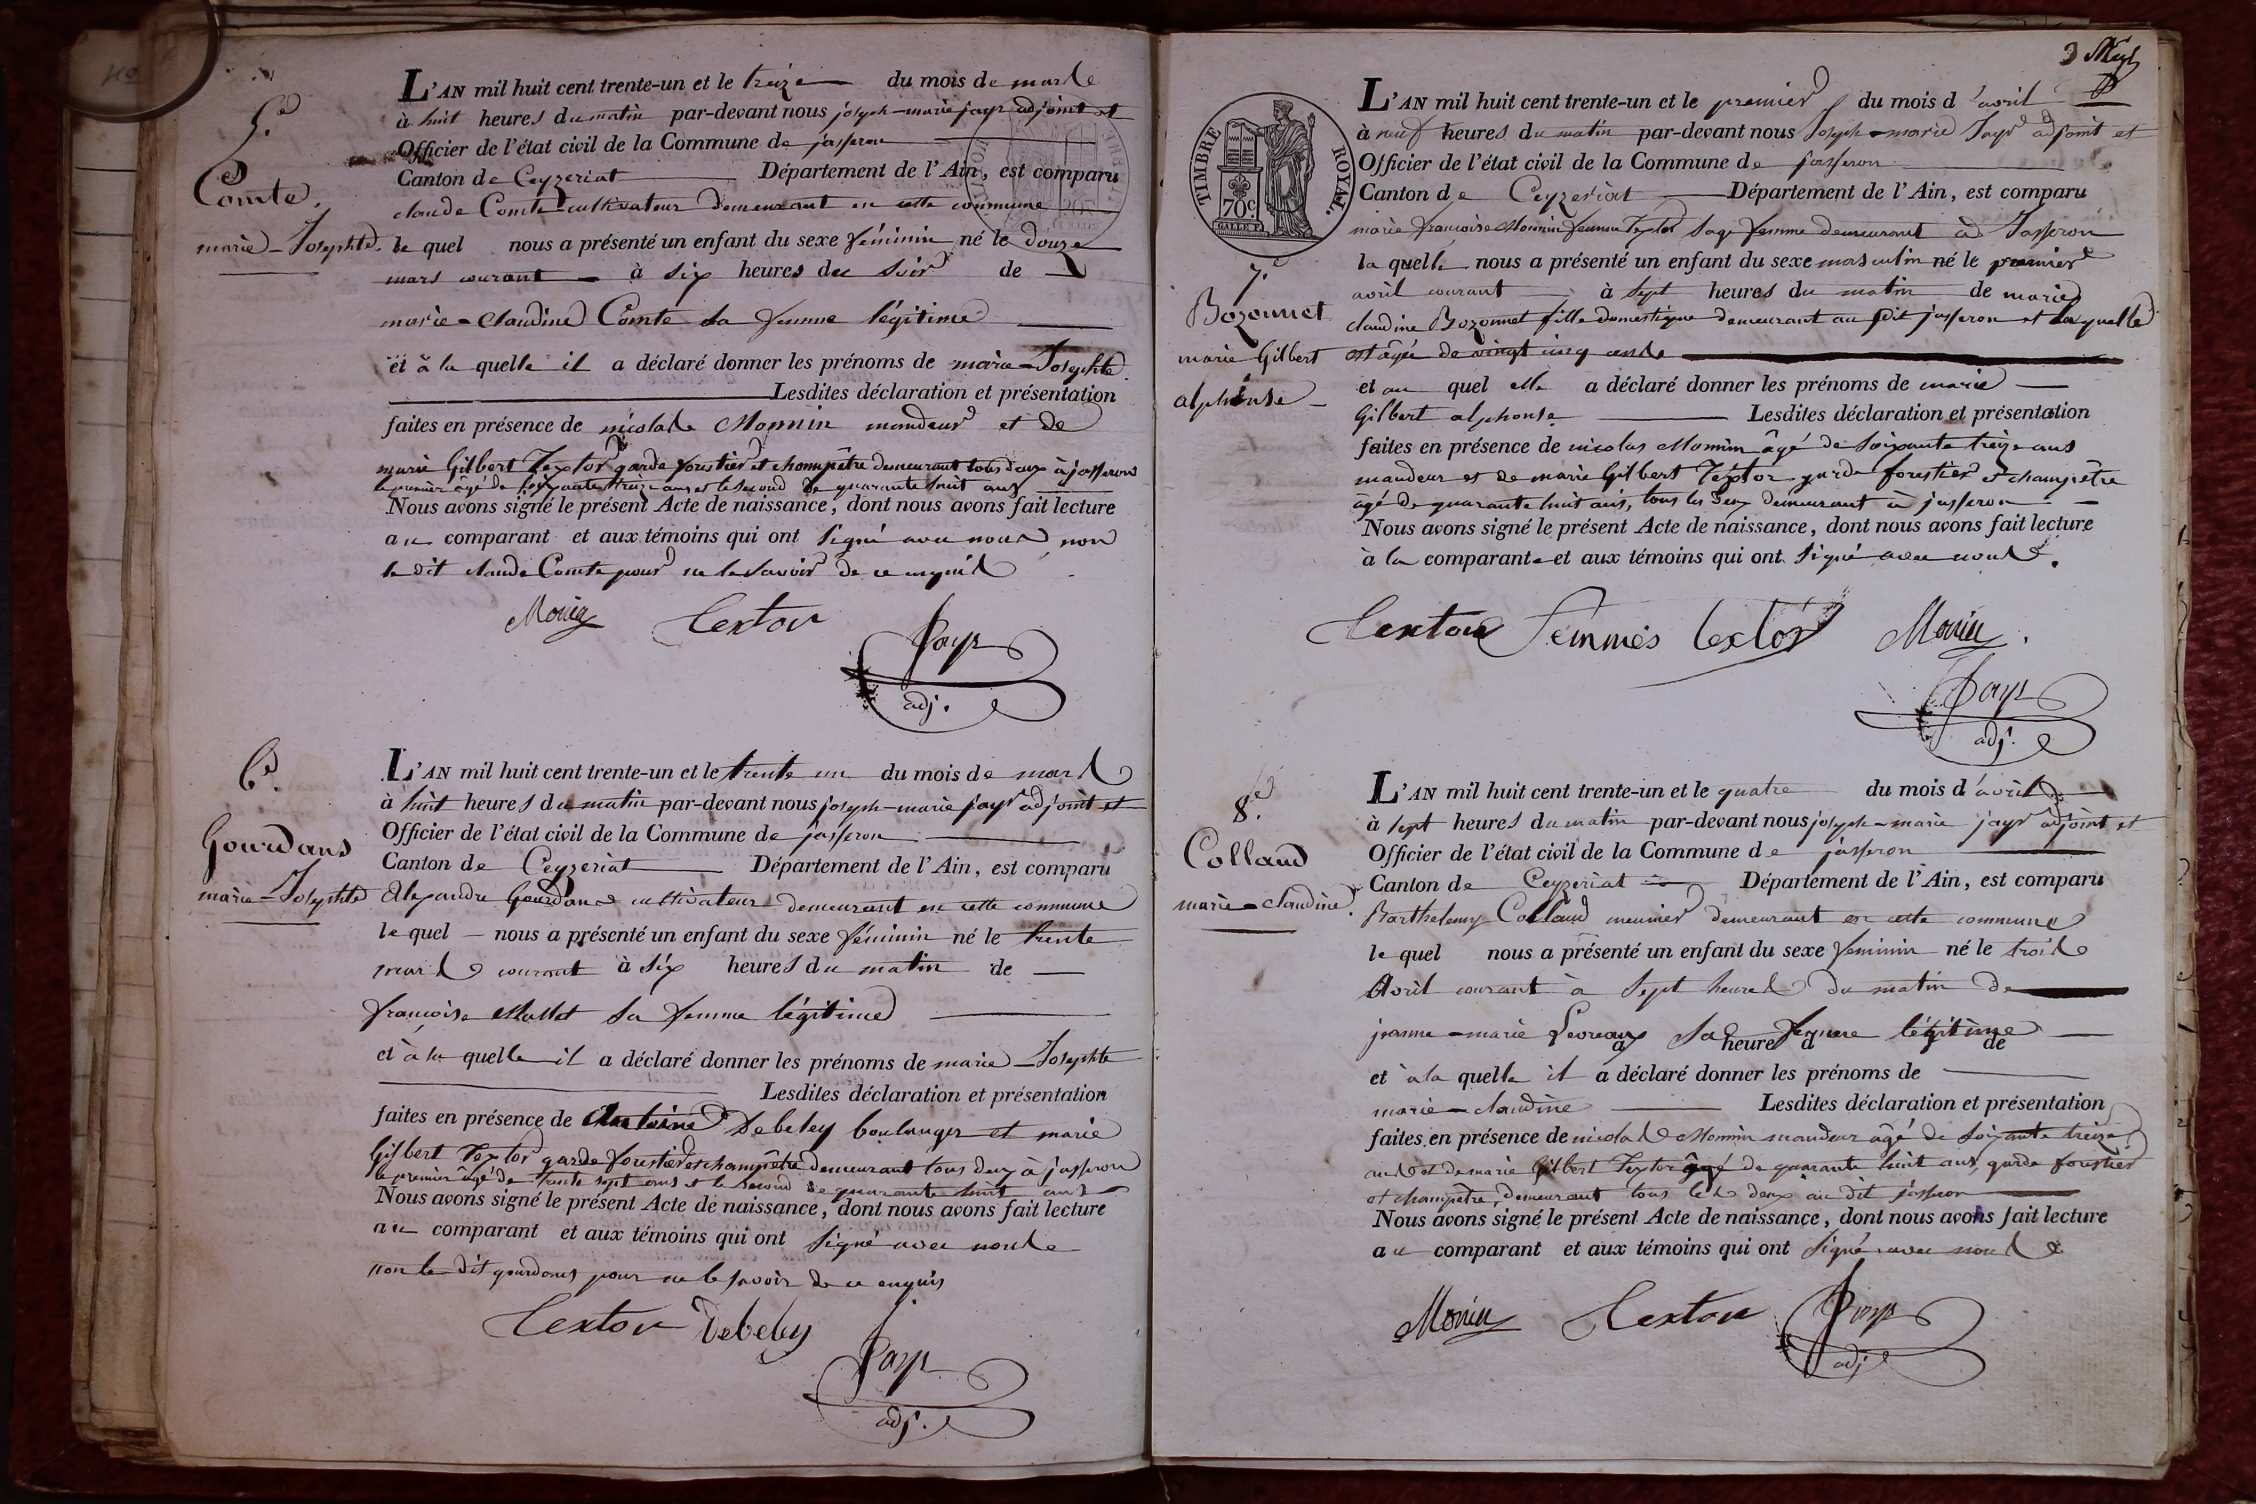 5.e
Comte.
marie-Josephte.
L'AN mil huit cent trente-un et le treize du mois de mars
à huit heures du matin par-devant nous joseph-marie jayr adjoint et
Officier de l'état civil de la Commune de jasseron
Canton de Ceyzeriat Département de l'Ain, est comparu
claude Comte cultivateur demeurant en cette commune
le quel nous a présenté un enfant du sexe féminin né le douze
mars courant à six heures du soir de
marie-claudine Comte sa femme légitime
et à la quelle il a déclaré donner les prénoms de marie-Josephte
Lesdites déclaration et présentation
faites en présence de nicolas Monnin mandeur et de
marie Gilbert Textor garde forestier et champêtre demeurant tous deux à jasseron
le premier âgé de soixante treize ans et le second de quarante huit ans
Nous avons signé le présent Acte de naissance, dont nous avons fait lecture
au comparant et aux témoins qui ont signé avec nous, non
le dit claude Comte pour ne le savoir de ce enquis
Monin Textor
Jayr
adj.
6.e
Gourdans
marie-Josephte
L'AN mil huit cent trente-un et le trente un du mois de mars
à huit heures du matin par-devant nous joseph-marie jayr adjoint et
Officier de l'état civil de la Commune de jasseron
Canton de Ceyzeriat Département de l'Ain, est comparu
Alexandre Gourdans cultivateur demeurant en cette commune
le quel nous a présenté un enfant du sexe féminin né le trente
mars courant à six heures du matin de
françoise Mallet sa femme légitime
et à la quelle il a déclaré donner les prénoms de marie-Josephte
Lesdites déclaration et présentation
faites en présence de Antoine Debeley boulanger et marie
Gilbert Textor garde forestier et champêtre demeurant tous deux à jasseron
le premier âgé de trente sept ans et le second de quarante huit ans
Nous avons signé le présent Acte de naissance, dont nous avons fait lecture
au comparant et aux témoins qui ont signé avec nous
non le dit gourdans pour ne le savoir de ce enquis
Textor Debeley
Jayr
adj.
3
TIMBRE ROYAL.
70c
7.e
Bozonnet
marie Gilbert
alphonse
L'AN mil huit cent trente-un et le premier du mois d'avril
à neuf heures du matin par-devant nous Joseph-marie Jayr adjoint et
Officier de l'état civil de la Commune de jasseron
Canton de Ceyzeriat Département de l'Ain, est comparu
marie françoise Monnin femme Textor sage femme demeurant à Jasseron
la quelle nous a présenté un enfant du sexe masculin né le premier
avril courant à sept heures du matin de marie
claudine Bozonnet fille domestique demeurant au dit jasseron et laquelle
est âgée de vingt cinq ans
et au quel elle a déclaré donner les prénoms de marie
Gilbert alphonse Lesdites déclaration et présentation
faites en présence de nicolas Monnin âgé de soixante treize ans
mandeur et de marie Gilbert Textor garde forestier et champêtre
âgé de quarante huit ans, tous les deux demeurant à jasseron
Nous avons signé le présent Acte de naissance, dont nous avons fait lecture
à la comparante et aux témoins qui ont signé avec nous.
Textor femmes textor Monin
Jayr
adj.
8.e
Colland
marie-claudine
L'AN mil huit cent trente-un et le quatre du mois d'avril
à sept heures du matin par-devant nous joseph-marie jayr adjoint et
Officier de l'état civil de la Commune de jasseron
Canton de Ceyzeriat Département de l'Ain, est comparu
Barthelemy Colland meunier demeurant en cette commune
le quel nous a présenté un enfant du sexe feminin né le trois
Avril courant à sept heures du matin de
jeanne-marie sa femme légitime
à heure d de
et à la quelle il a déclaré donner les prénoms de
marie-claudine Lesdites déclaration et présentation
faites en présence de nicolas Monnin mandeur âgé de soixante treize
ans et de marie Gilbert Textor âgé de quarante huit ans, garde forestier
et champêtre, demeurant tous les deux au dit jasseron
Nous avons signé le présent Acte de naissance, dont nous avons fait lecture
au comparant et aux témoins qui ont signé avec nous
Monin Textor Jayr
adj